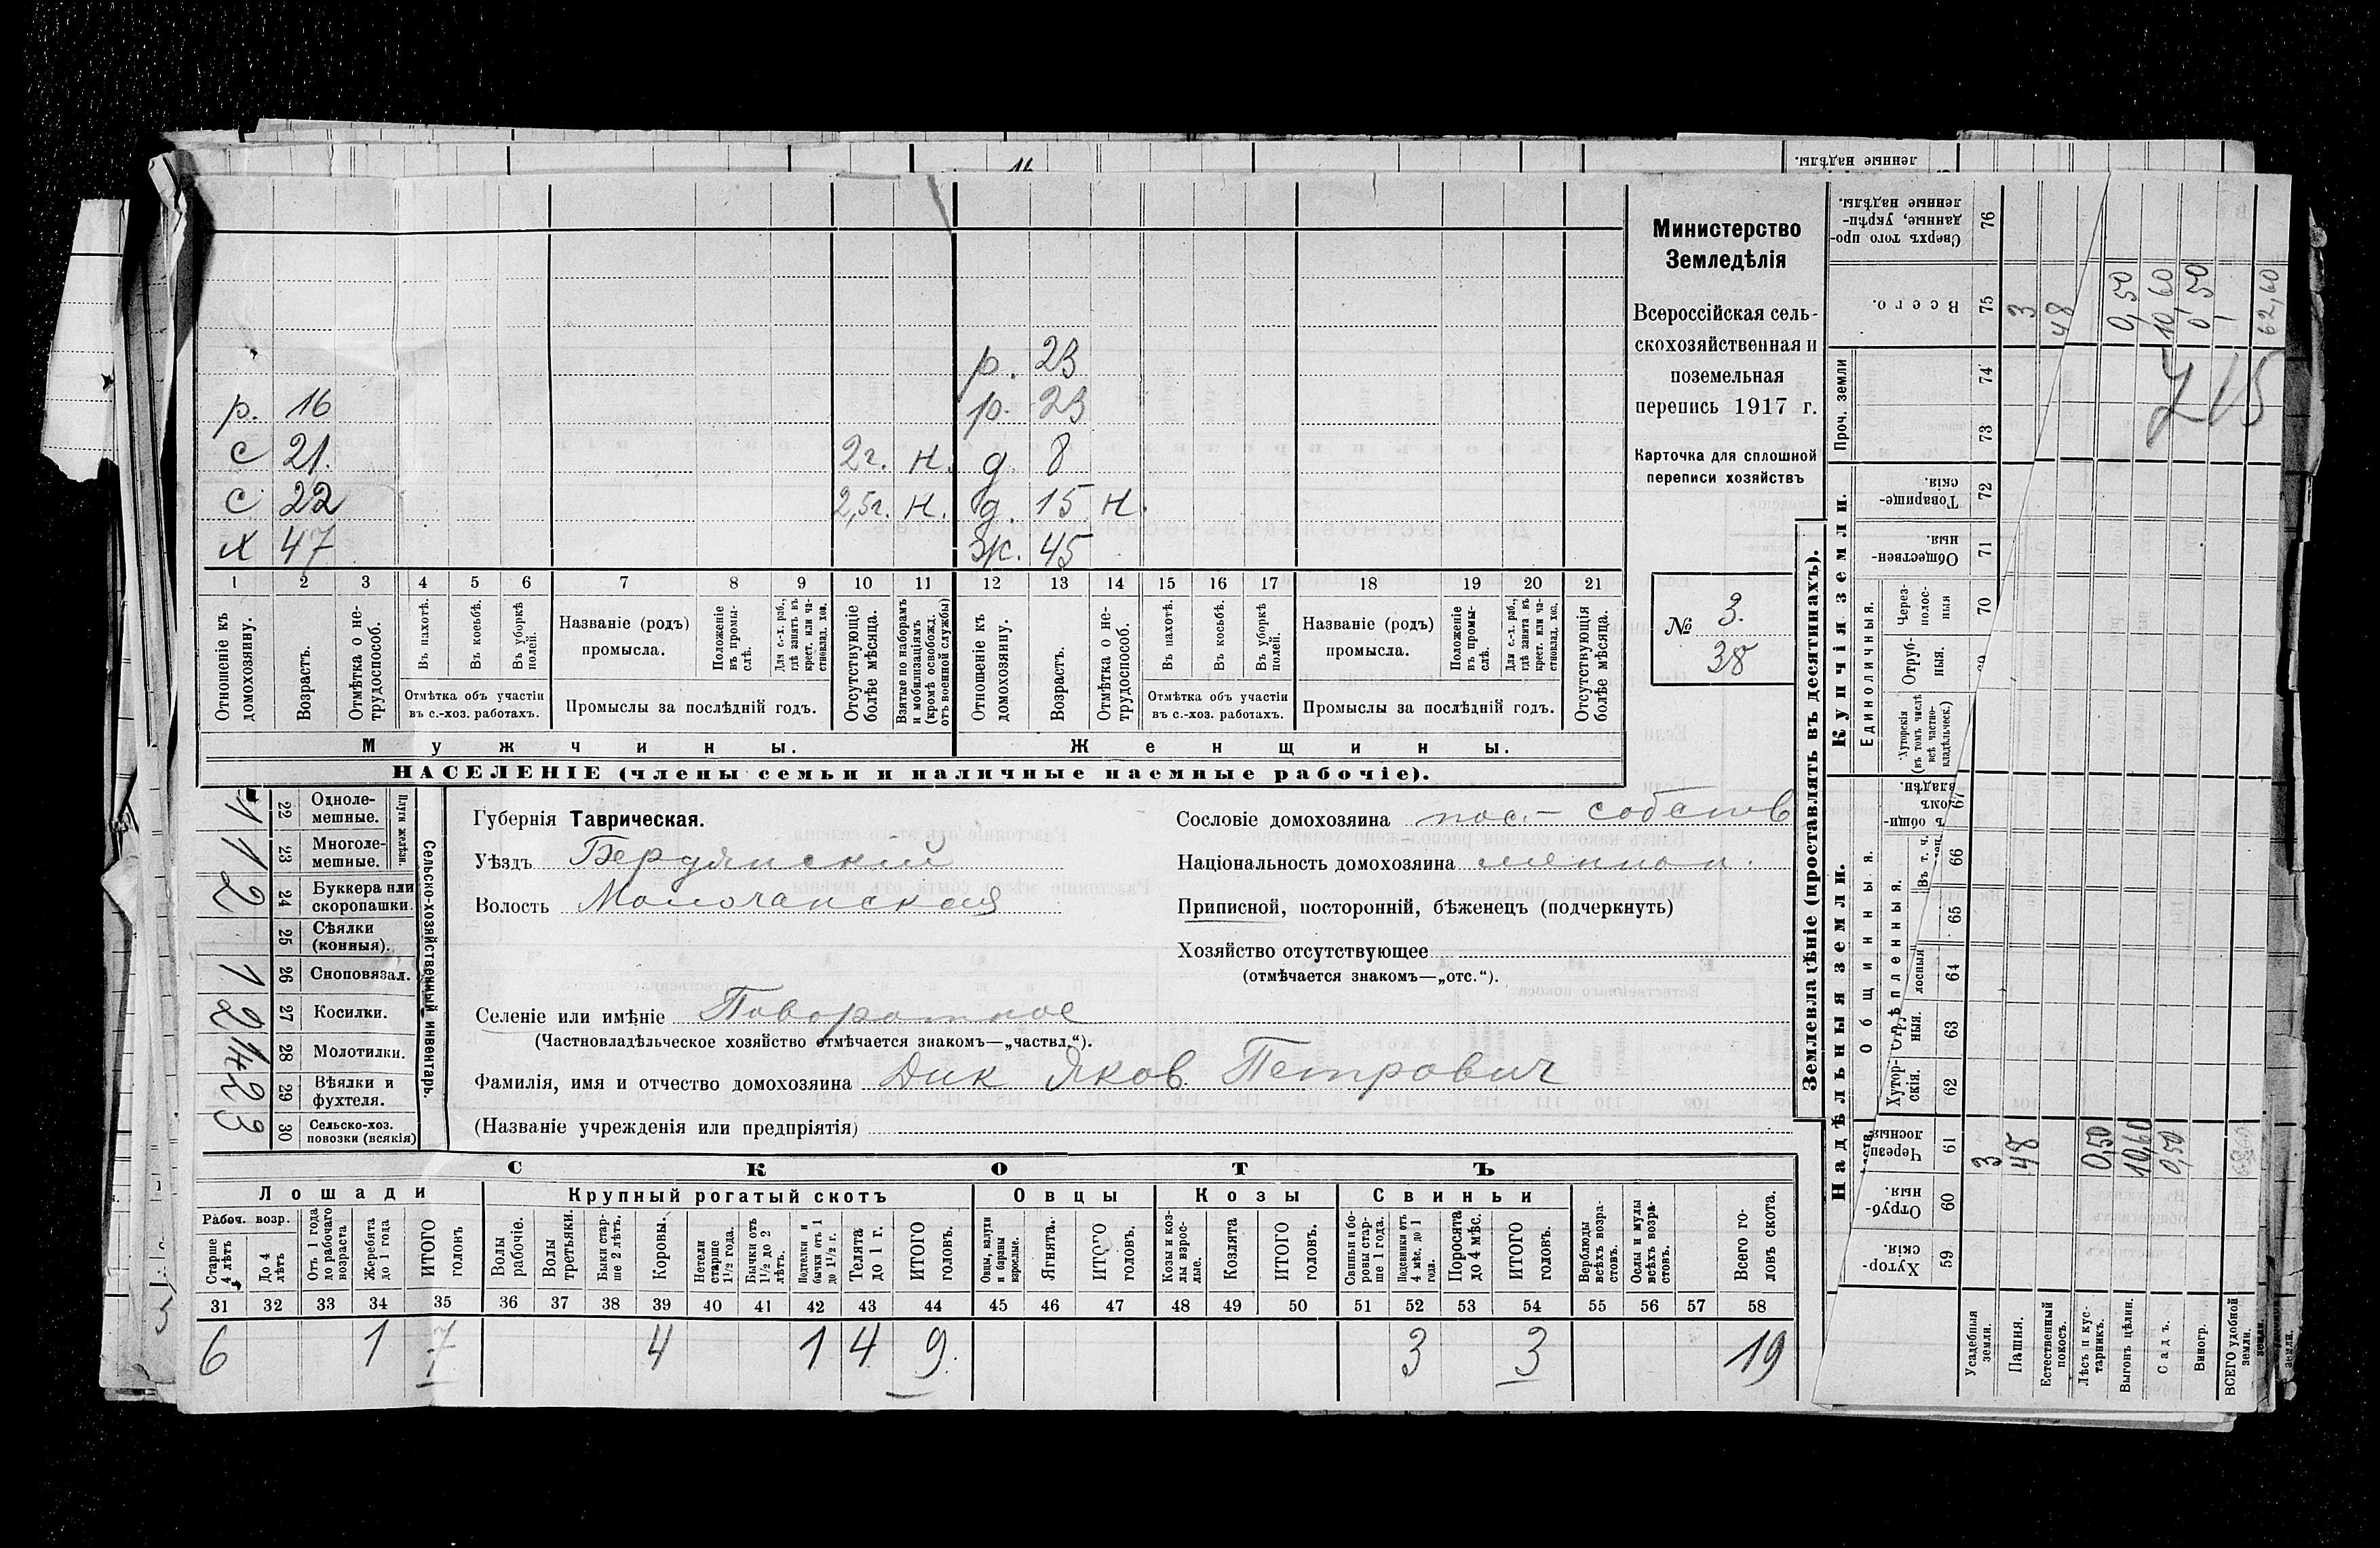 Министерство
Земледѣлія
Всероссійская сель-
скохозяйственная и
поземельная
перепись 1917 г.
Карточка для сплошной
переписи хозяйствъ
№ 3.
38
р. 23
р. 16 р. 23
с 21. 2г. н. д. 8
с 22 2,5г. н. д. 15 н.
х 47 ж. 45
1 2 3 4 5 6 7 8 9 10 11 12 13 14 15 16 17 18 19 20 21
Отношеніе къ домохозяину.
Возрастъ.
Отмѣтка о не-трудоспособ.
Въ пахотѣ.
Въ косьбѣ.
Въ уборкѣ полей.
Отмѣтка объ участіи
въ с.-хоз. работахъ.
Названіе (родъ)
промысла.
Положеніе въ промы-слѣ.
Для с.-х. раб., гдѣ занятъ въ крест. или ча-стновлад. хоз.
Промыслы за послѣдній годъ.
Отсутствующіе болѣе мѣсяца.
Взятые по наборамъ и мобилизаціямъ (кромѣ освобожд. отъ военной службы)
Отношеніе къ домохозяину.
Возрастъ.
Отмѣтка о не-трудоспособ.
Въ пахотѣ.
Въ косьбѣ.
Въ уборкѣ полей.
Отмѣтка объ участіи
въ с.-хоз. работахъ.
Названіе (родъ)
промысла.
Положеніе въ промы-слѣ.
Для с.-х. раб., гдѣ занята въ крест. или ча-стновлад. хоз.
Промыслы за послѣдній годъ.
Отсутствующія болѣе мѣсяца.
Мужчины. Женщины.
НАСЕЛЕНІЕ (члены семьи и наличные наемные рабочіе).
Сельско-хозяйственный инвентарь.
Плуги желѣзн.
1 22 Одноле-мешные.
1 23 Многоле-мешные.
2 24 Буккера или скоропашки.
25 Сѣялки (конныя).
1 26 Сноповязал.
2 27 Косилки.
28 Молотилки.
2 29 Вѣялки и фухтеля.
3 30 Сельско-хоз. повозки (всякія)
Губернія Таврическая.
Уѣздъ Бердянскій
Волость Молочанская
Сословіе домохозяина пос.- собств
Національность домохозяина меннон.
Приписной, посторонній, бѣженецъ (подчеркнуть)
Хозяйство отсутствующее
(отмѣчается знакомъ—„отс.“).
Селеніе или имѣніе Поворотное
(Частновладѣльческое хозяйство отмѣчается знакомъ—„частвл.“).
Фамилія, имя и отчество домохозяина Дик Яков Петрович
(Названіе учрежденія или предпріятія)
СКОТЪ
Лошади Крупный рогатый скотъ Овцы Козы Свиньи
Рабоч. возр.
Старше 4 лѣтъ
До 4 лѣтъ
Отъ 1 года до рабочаго возраста
Жеребята до 1 года
ИТОГО головъ
Волы рабочіе.
Волы третьяки.
Быки стар-ше 2 лѣтъ.
Коровы.
Нетели старше 1½ года.
Бычки отъ 1½ до 2 лѣтъ.
Подтелки и бычки отъ 1 до 1½ г.
Телята до 1 г.
ИТОГО головъ.
Овцы, валухи и бараны взрослые.
Ягнята.
ИТОГО головъ.
Козы и коз-лы взрос-лые.
Козлята
ИТОГО головъ.
Свиньи и бо-ровы стар-ше 1 года.
Подсвинки отъ 4 мѣс. до 1 года.
Поросята до 4 мѣс.
ИТОГО головъ.
Верблюды всѣхъ возра-стовъ.
Ослы и мулы всѣхъ возра-стовъ.
Всего го-ловъ скота.
31 32 33 34 35 36 37 38 39 40 41 42 43 44 45 46 47 48 49 50 51 52 53 54 55 56 57 58
6 1 7 4 1 4 9. 3 3 19
Землевладѣніе (проставлять въ десятинахъ).
Надѣльныя земли. Купчія земли. Проч. земли
Общинныя. Единоличныя.
Сверхъ того про-данные, укрѣп-ленные надѣлы. 76
Всего. 75
3 48 0,50 10,60 0,50 62,60
715
74
73
Товарище-скія. 72
Обществен-ныя. 71
Через-полос-ныя 70
Отруб-ныя.
Хуторскія (въ томъ числѣ всѣ частно-владѣльческ.)
67
66
65
64
63
Хутор-скія. 62
61 3 48 0,50 10,60 0,50
Отруб-ныя. 60
Хутор-скія. 59
Усадебныя земли.
Пашня.
Естественный покосъ.
Лѣсъ и кус-тарникъ.
Выгонъ цѣлин.
Садъ.
Виногр.
ВСЕГО удобной земли.